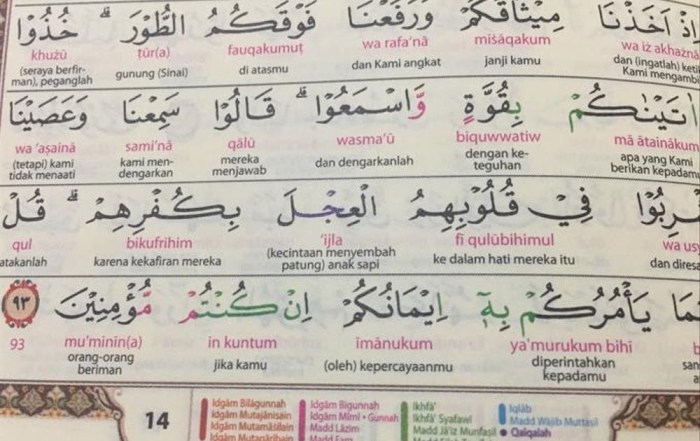 اِذْ اَخَذْنَا مِيْثَاقَكُمْ وَرَفَعْنَا فَوْقَكُمُ الطُّوْرَۗ خُذُوْا
wa iż akhażnā mīṡāqakum wa rafa‘nā fauqakumuṭ ṭūr(a) khużū
dan (ingatlah) ketika Kami mengambil janji kamu dan Kami angkat di atasmu gunung (Sinai) (seraya berfirman), peganglah
اٰتَيْنٰكُمْ بِقُوَّةٍ وَّاسْمَعُوْاۗ قَالُوْا سَمِعْنَا وَعَصَيْنَا
mā ātainākum biquwwatiw wasma‘ū qālū sami‘nā wa ‘aṣainā
apa yang Kami berikan kepadamu dengan keteguhan dan dengarkanlah mereka menjawab kami mendengarkan (tetapi) kami tidak menaati
فِيْ قُلُوْبِهِمُ الْعِجْلَ بِكُفْرِهِمْۗ قُلْ
fī qulūbihimul ‘ijla bikufrihim qul
ke dalam hati mereka itu (kecintaan menyembah patung) anak sapi karena kekafiran mereka
يَأْمُرُكُمْ بِهٖٓ اِيْمَانُكُمْ اِنْ كُنْتُمْ مُّؤْمِنِيْنَ ٩٣
ya'murukum bihī īmānukum in kuntum mu'minīn(a) 93
diperintahkan kepadamu (oleh) kepercayaanmu jika kamu orang-orang beriman
14
Idgām Bilāgunnah Idgām Bigunnah Ikhfā' Iqlāb
Idgām Mutajānisain Idgām Mīmī • Gunnah Ikhfā' Syafawī Madd Wājib Muttaṣil
Idgām Mutamāṡilain Madd Lāzim Madd Jā'iz Munfaṣil Qalqalah